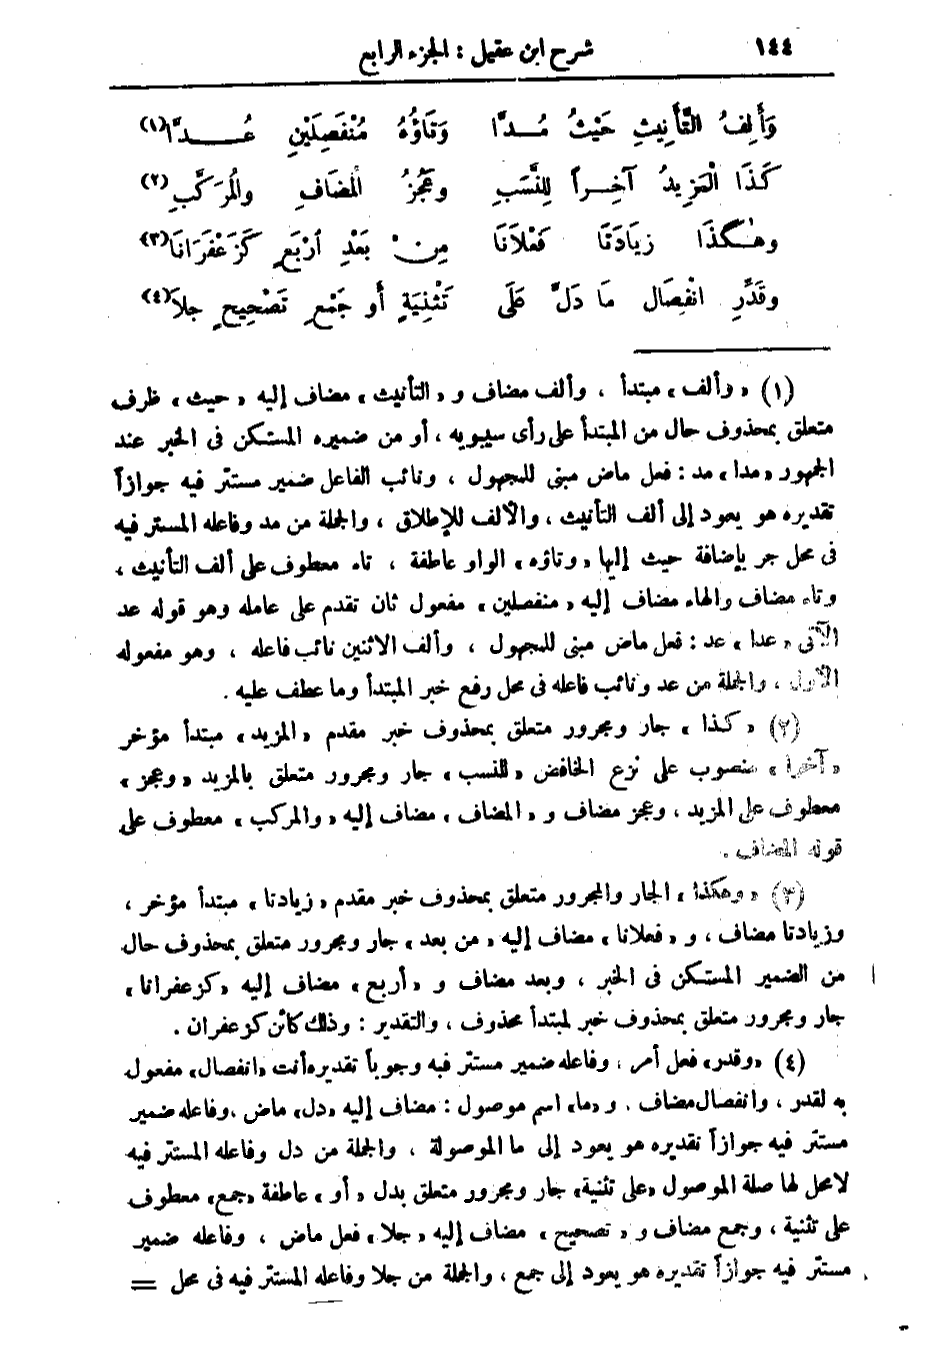 ١٤٤ شرح ابن عقيل : الجزء الرابع
وَأَلِفُ التَّأْنِيثِ حَيْثُ مُــدَّا وَتَاؤُهُ مُنْفَصِلَيْنِ عُــــدَّا(١)
كَذَا الْمَزِيدُ آخِــراً لِلنَّسَبِ وعَجُزُ الْمُضَافِ والْمُرَكَّبِ(٢)
وهٰكَذَا زِيَادَتَا فَعْلَانَا مِنْ بَعْدِ أرْبَعٍ كَزَعْفَرَانَا(٣)
وقَدِّرِ انْفِصَال مَا دَلَّ عَلَى تَثْنِيَةٍ أو جَمْعِ تَصْحِيحٍ جلاَ(٤)
(١) « وألف » مبتدأ ، وألف مضاف و « التأنيث » مضاف إليه « حيث » ظرف
متعلق بمحذوف حال من المبتدأ على رأى سيبويه ، أو من ضميره المستكن فى الخبر عند
الجمهور « مدا » مد : فعل ماض مبنى للمجهول ، ونائب الفاعل ضمير مستتر فيه جوازاً
تقديره هو يعود إلى ألف التأنيث ، والألف للإطلاق ، والجملة من مد وفاعله المستتر فيه
فى محل جر بإضافة حيث إليها « وتاؤه » الواو عاطفة ، تاء معطوف على ألف التأنيث ،
وتاء مضاف والهاء مضاف إليه « منفصلين » مفعول ثان تقدم على عامله وهو قوله عد
الآتى « عدا » عد : فعل ماض مبنى للمجهول ، وألف الاثنين نائب فاعله ، وهو مفعوله
الأول ، والجملة من عد ونائب فاعله فى محل رفع خبر المبتدأ وما عطف عليه .
(٢) « كذا » جار ومجرور متعلق بمحذوف خبر مقدم « المزيد » مبتدأ مؤخر
« آخرا » منصوب على نزع الخافض « للنسب » جار ومجرور متعلق بالمزيد « وعجز »
معطوف على المزيد ، وعجز مضاف و « المضاف » مضاف إليه « والمركب » معطوف على
قوله المضاف .
(٣) « وهكذا » الجار والمجرور متعلق بمحذوف خبر مقدم « زيادتا » مبتدأ مؤخر ،
وزيادتا مضاف ، و « فعلانا » مضاف إليه « من بعد » جار ومجرور متعلق بمحذوف حال
من الضمير المستكن فى الخبر ، وبعد مضاف و « أربع » مضاف إليه « كزعفرانا »
جار ومجرور متعلق بمحذوف خبر لمبتدأ محذوف ، والتقدير : وذلك كائن كزعفران .
(٤) « وقدر » فعل أمر ، وفاعله ضمير مستتر فيه وجوباً تقديره أنت « انفصال » مفعول
به لقدر ، وانفصال مضاف ، و « ما » اسم موصول : مضاف إليه « دل » ماض ، وفاعله ضمير
مستتر فيه جوازاً تقديره هو يعود إلى ما الموصولة ، والجملة من دل وفاعله المستتر فيه
لا محل لها صلة الموصول « على تثنية » جار ومجرور متعلق بدل « أو » عاطفة « جمع » معطوف
على تثنية ، وجمع مضاف و « تصحيح » مضاف إليه « جلا » فعل ماض ، وفاعله ضمير
مستتر فيه جوازاً تقديره هو يعود إلى جمع ، والجملة من جلا وفاعله المستتر فيه فى محل =